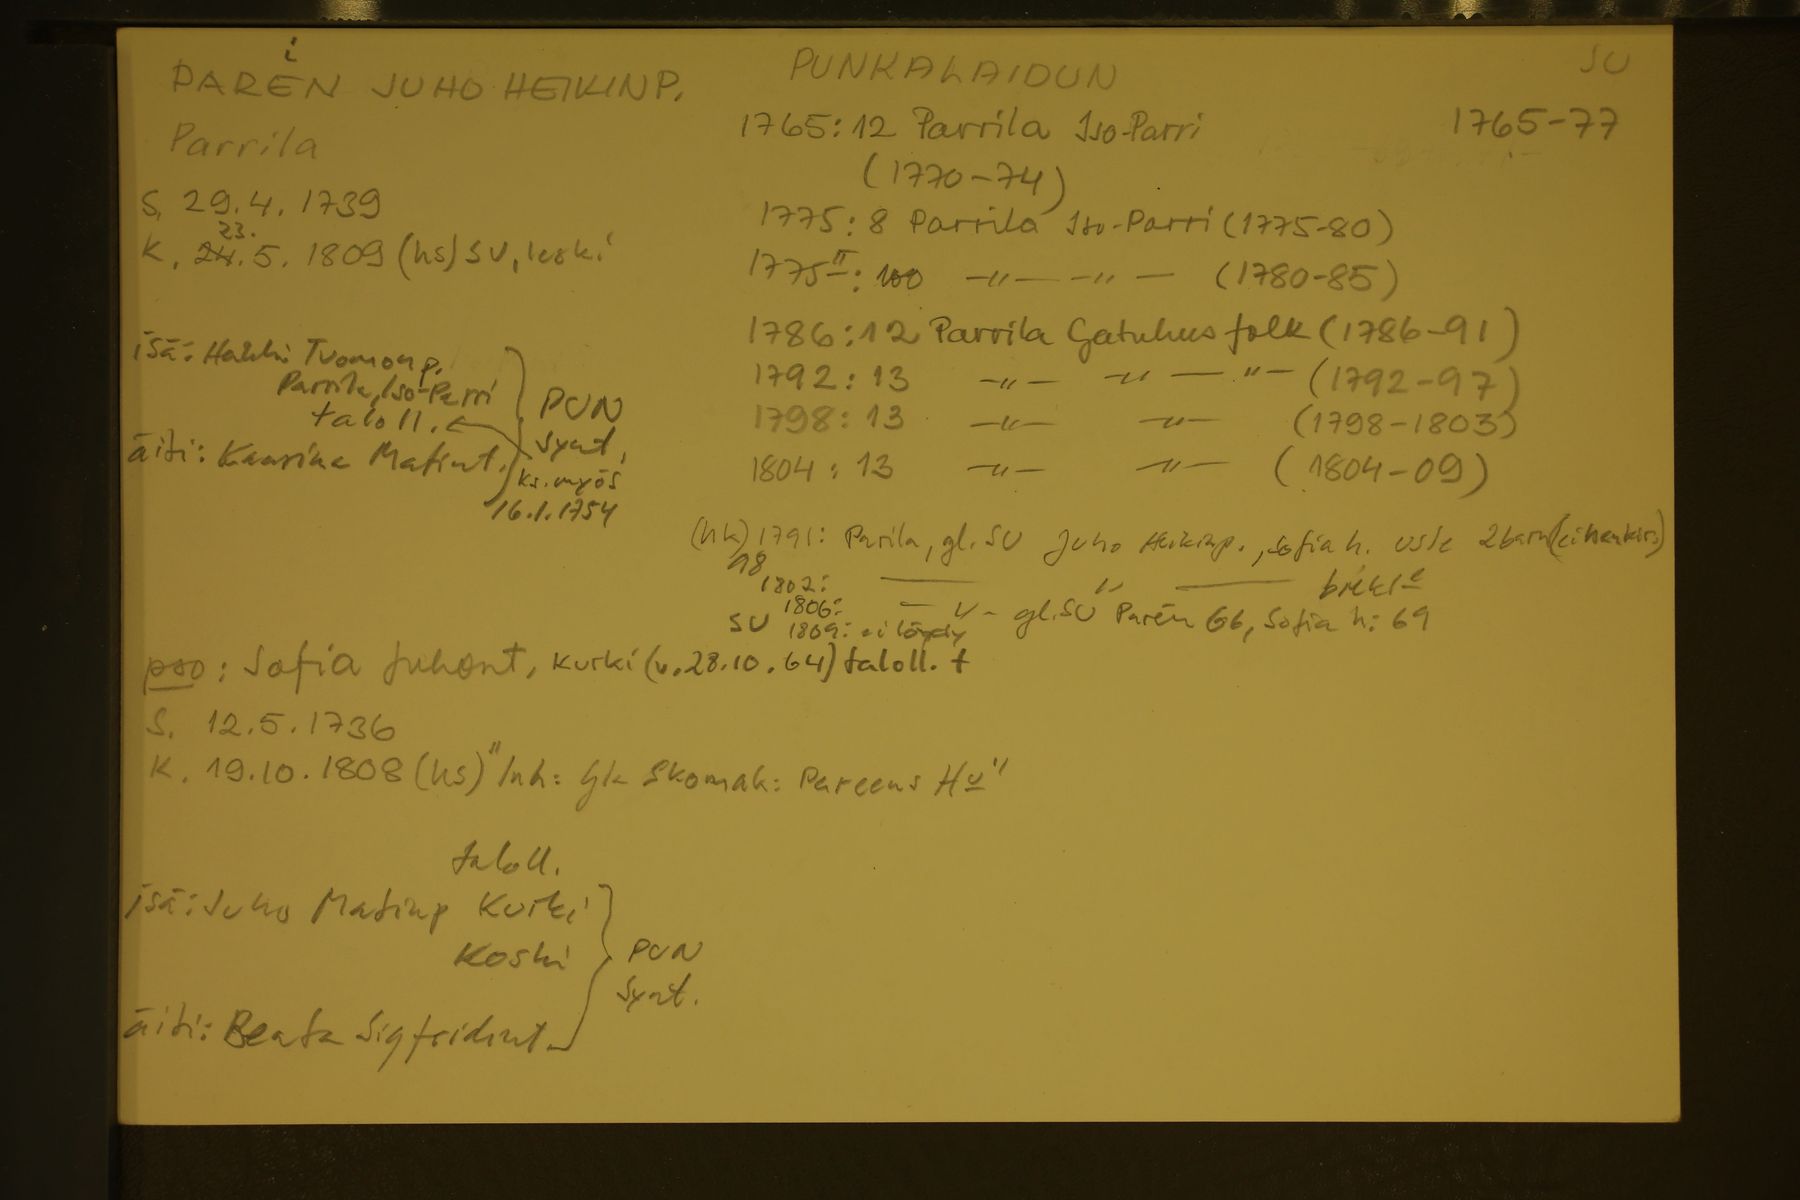 PARÉN JUHO HEIKINP.
i
Parrila
S. 29.4.1739
23.
K. 24.5.1809 (hs) SU, leski
isä: Heikki Tuomonp.
Parrila, Iso-Parri
taloll.
äiti: Kaarina Matint.
PUN
synt.
ks. myös
16.1.1754
PUNKALAIDUN
SU
1765:12 Parrila Iso-Parri
1765-77
(1770-74)
1775:8 Parrila Iso-Parri (1775-80)
1775II: 100 -"- -"- (1780-85)
1786:12 Parrila Gatuhusfolk (1786-91)
1792:13 -"- -"- -"- (1792-97)
1798:13 -"- -"- (1798-1803)
1804:13 -"- -"- (1804-09)
(hk) 1791: Parila, gl. SU Juho Heikinp., Sofia h. 2 barn
98
1802: — " —
1806: -"- gl. SU Parén 66, Sofia h: 69
SU 1809: ei löydy
pso: Sofia Juhont, Kurki (v. 28.10.64) taloll. t
S. 12.5.1736
K. 19.10.1808 (hs) "Inh: Skomak: Pareens Hu"
taloll.
isä: Juho Matinp Kurki
Koski
äiti: Beata Sigfridint.
PUN
synt.